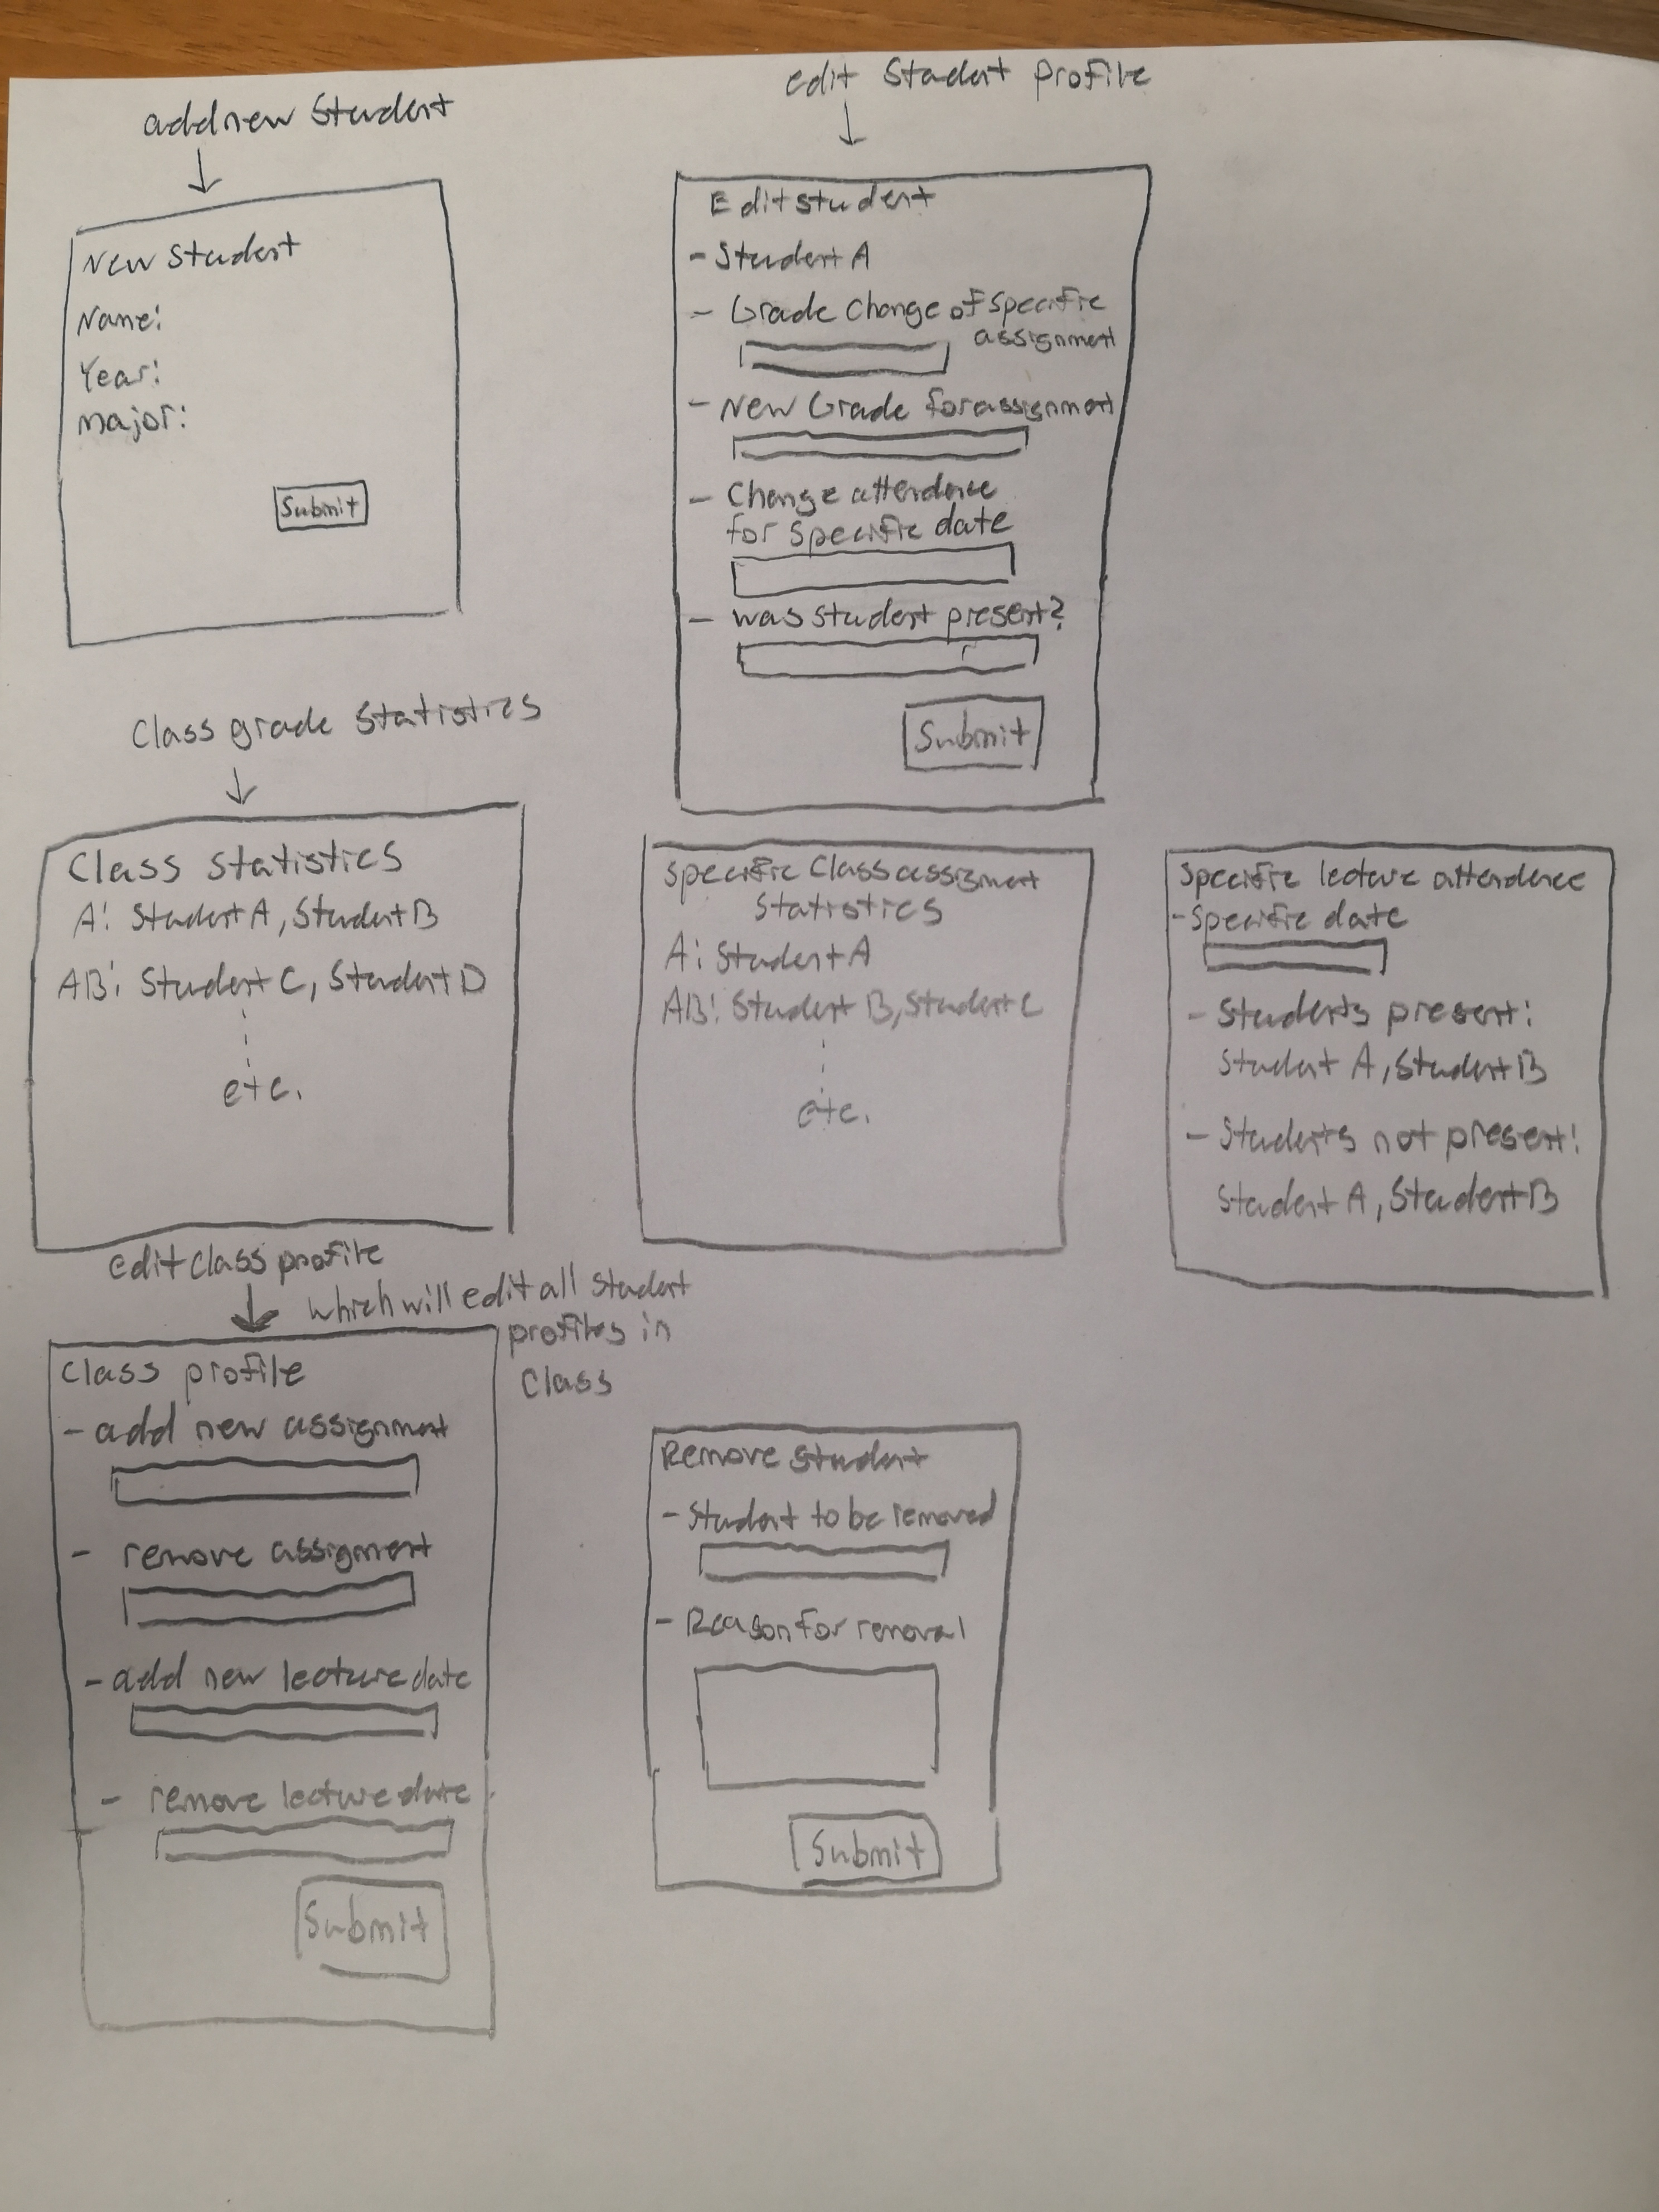 add new Student
New Student
Name:
Year:
Major:
Submit
edit Student Profile
Edit student
- Student A
- Grade Change of specific
assignment
- New Grade for assignment
- Change attendence
for specific date
- was student present?
Submit
Class grade Statistics
Class Statistics
A: Student A, Student B
AB: Student C, Student D
etc.
Specific Class assignment
Statistics
A: Student A
AB: Student B, Student C
etc.
Specific lecture attendence
- Specific date
- Students present:
Student A, Student B
- Students not present:
Student A, Student B
edit class profile
which will edit all student
profiles in
Class
Class profile
- add new assignment
- remove assigment
- add new lecture date
- remove lecture date
Submit
Remove Student
- Student to be removed
- Reason for removal
Submit